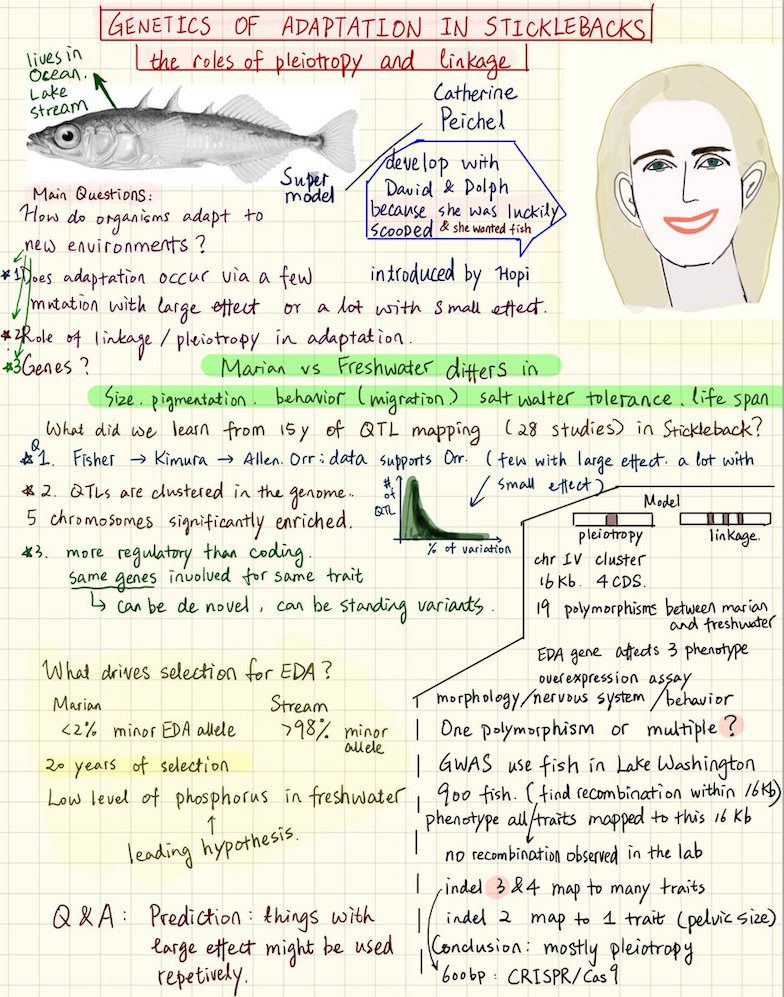 GENETICS OF ADAPTATION IN STICKLEBACKS
the roles of pleiotropy and linkage
lives in
Ocean.
Lake
stream
Catherine
Peichel
Super
model
develop with
David & Dolph
because she was luckily
scooped & she wanted fish
introduced by Hopi
Main Questions:
How do organisms adapt to
new environments?
*1 Does adaptation occur via a few
mutation with large effect or a lot with small effect.
*2 Role of linkage / pleiotropy in adaptation.
*3 Genes?
Marian vs Freshwater differs in
Size. pigmentation. behavior (migration) salt walter tolerance. life span
What did we learn from 15y of QTL mapping (28 studies) in Stickleback?
Q
*1. Fisher → Kimura → Allen. Orr: data supports Orr. (few with large effect. a lot with
small effect)
*2. QTLs are clustered in the genome.
5 chromosomes significantly enriched.
# of QTL
% of variation
*3. more regulatory than coding.
same genes involved for same trait
↳ can be de novel, can be standing variants.
Model
pleiotropy
linkage.
chr IV cluster
16 Kb. 4 CDS.
19 polymorphisms between marian
and freshwater
EDA gene affects 3 phenotype
overexpression assay
morphology/nervous system/behavior
One polymorphism or multiple?
GWAS use fish in Lake Washington
900 fish. (find recombination within 16Kb)
phenotype all traits mapped to this 16 Kb
no recombination observed in the lab
indel 3 & 4 map to many traits
indel 2 map to 1 trait (pelvic size)
Conclusion: mostly pleiotropy
600bp: CRISPR/Cas9
What drives selection for EDA?
Marian
<2% minor EDA allele
Stream
>98% minor
allele
20 years of selection
Low level of phosphorus in freshwater
↑
leading hypothesis.
Q & A: Prediction: things with
large effect might be used
repetively.